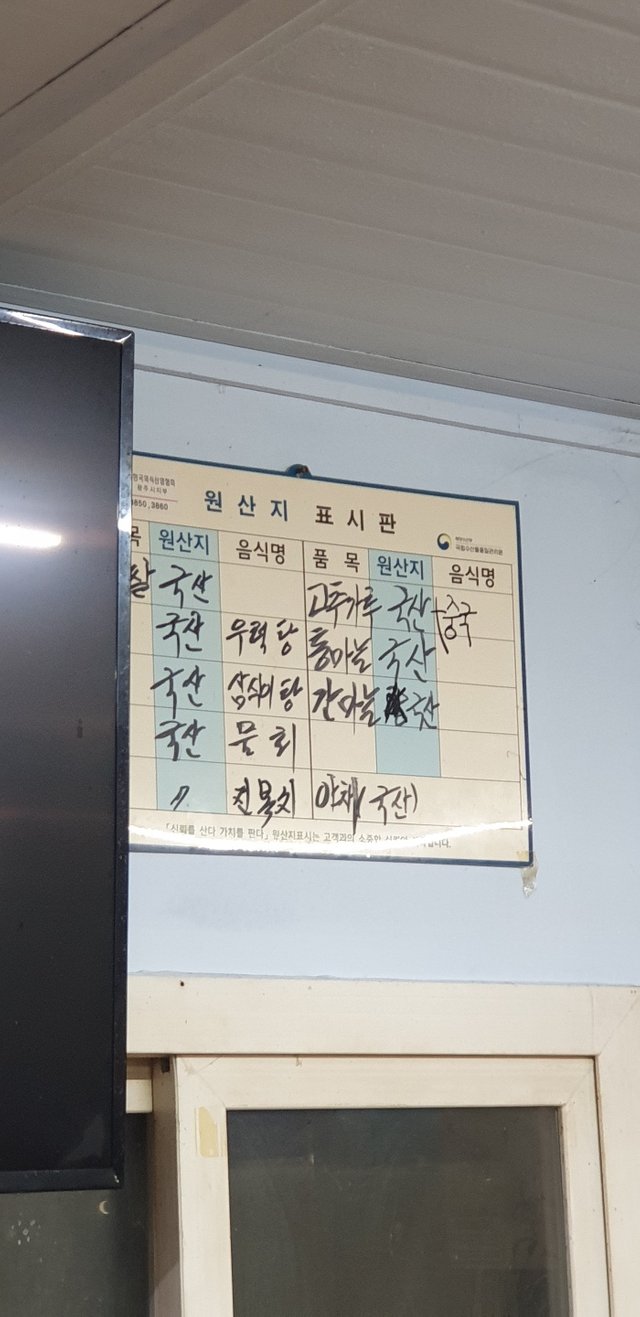 원산지 표시판
3850, 3860
해양수산부
국립수산물품질관리원
목 원산지 음식명 품목 원산지 음식명
쌀 국산 고추가루 국산 중국
국산 우럭탕 통마늘 국산
국산 삼식이탕 간마늘 국산
국산 물회
〃 야채(국산)
「신뢰를 산다 가치를 판다」 원산지표시는 고객과의 소중한